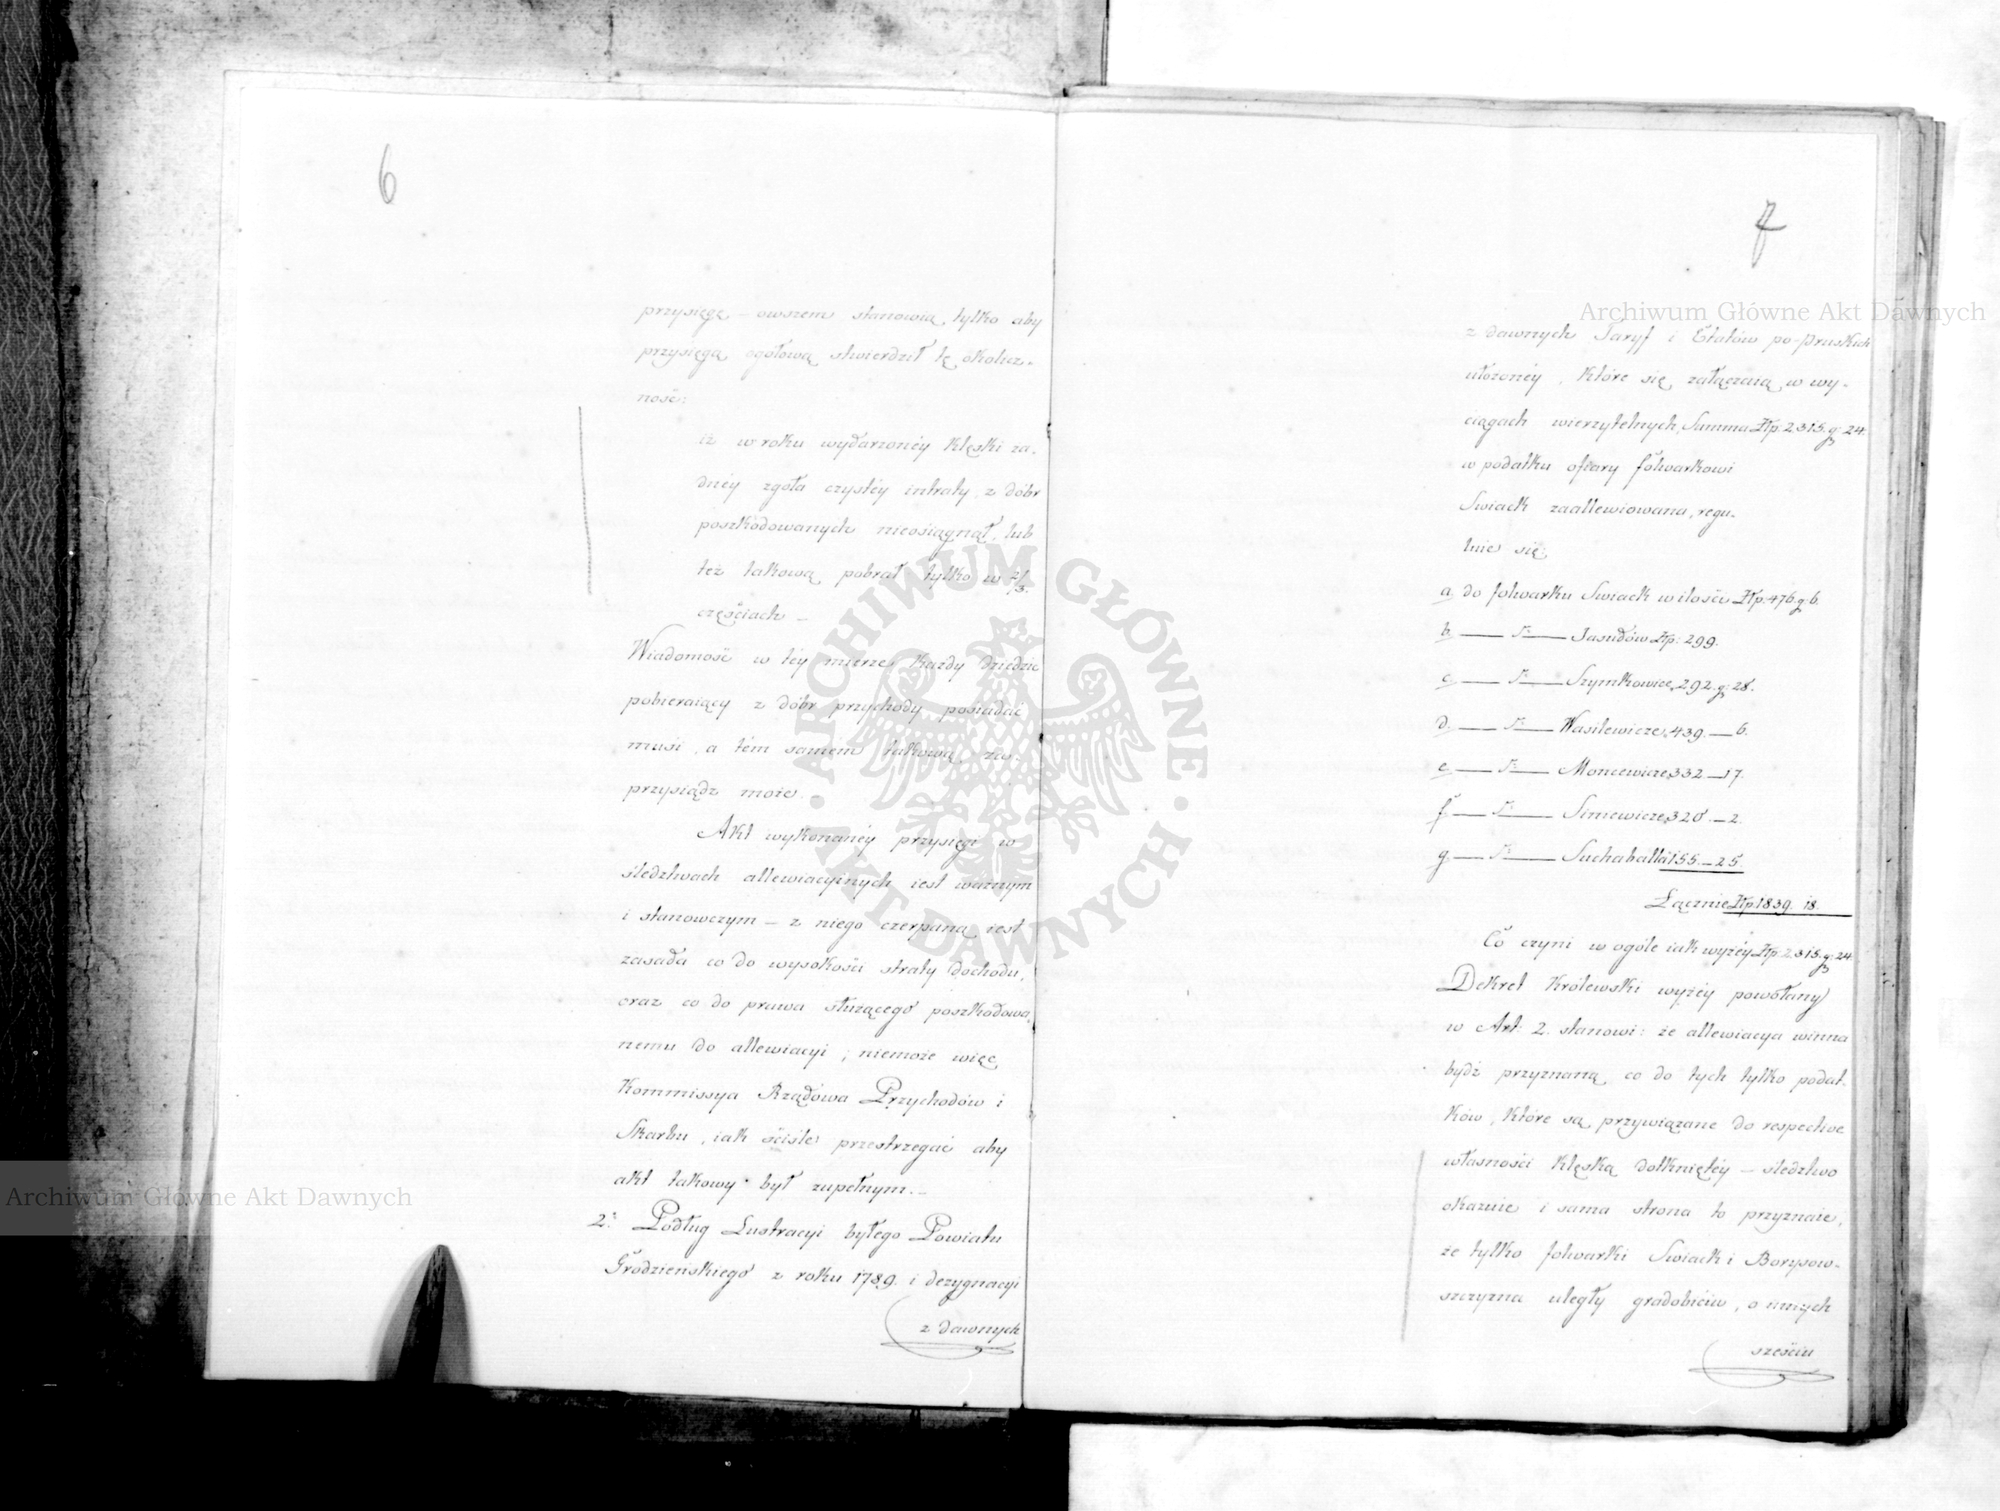 6
przysięgę – owszem stanowią, tylko aby
przysięgą ogołową stwierdził tę okolicz-
ność:
iż w roku wydarzonéy klęski ża-
dnéy zgoła czystéy intraty z dóbr
poszkodowanych nieosiągnął, lub
też takową pobrał tylko w 2/3.
częściach –
Wiadomość w téy mierze każdy dziedzic
pobieraiący z dóbr przychody posiadać
musi, a tém samém takową, za-
przysiądz może.
Akt wykonanéy przysięgi w
śledztwach allewiacyinych iest ważnym
i stanowczym – z niego czerpaną iest
zasada co do wysokości straty dochodu,
oraz co do prawa służącego poszkodowa-
nemu do allewiacyi; niemoże więc
Kommissya Rządowa Przychodów i
Skarbu, iak ściśle przestrzegać aby
akt takowy był zupełnym. –
2. Podług Lustracyi byłego Powiatu
Grodzieńskiego z roku 1789. i dezygnacyi
z dawnych
7
z dawnych Taryf i Etatów po-Pruskich
ułożonéy, które się załączaią w wy-
ciągach wierzytelnych, Summa Złp. 2315. g: 24.
w podatku ofiary folwarkowi
Swiack zaallewiowana, regu-
luie się:
a do folwarku Swiack w ilości Złp. 476. g. 6.
b. — " — Jasudów Złp: 299.
c — " — Szymkowice, 292. g: 28.
d. — " — Wasilewicze, 439. — 6.
e — " — Moncewicze 332 — 17.
f — " — Siniewicze 320. — 2.
g. — " — Suchaballa 155. — 25.
Łącznie Złp. 1839. 18.
Co czyni w ogóle iak wyżéy Złp: 2315. g: 24.
Dekret Królewski wyżéy powołany
w Art: 2. stanowi: że allewiacya winna
bydź przyznaną, co do tych tylko podat-
ków, które są przywiązane do respective
własności klęską dotkniętéy – śledztwo
okazuie i sama strona to przyznaie,
że tylko folwarki Swiack i Borysow-
szczyzna uległy gradobiciu, o innych
sześciu
Archiwum Główne Akt Dawnych
Archiwum Główne Akt Dawnych
ARCHIWUM GŁÓWNE
AKT DAWNYCH